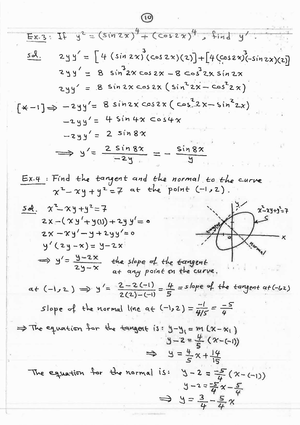 10
Ex.3: If y² = (sin2x)⁴ + (cos2x)⁴, find y'.
sol. 2yy' = [4(sin2x)³(cos2x)(2)] + [4(cos2x)³(-sin2x)(2)]
2yy' = 8 sin³2x cos2x - 8 cos³2x sin2x
2yy' = 8 sin2x cos2x (sin²2x - cos²2x)
[*-1] ⇒ -2yy' = 8 sin2x cos2x (cos²2x - sin²2x)
-2yy' = 4 sin4x cos4x
-2yy' = 2 sin8x
⇒ y' = 2 sin8x / -2y = - sin8x / y
Ex.4: Find the tangent and the normal to the curve
x² - xy + y² = 7 at the point (-1,2).
sol. x² - xy + y² = 7
x² - xy + y² = 7
2x - (xy' + y(1)) + 2yy' = 0
2x - xy' - y + 2yy' = 0
y'(2y - x) = y - 2x
x
normal
⇒ y' = y-2x / 2y-x the slope of the tangent
at any point on the curve.
at (-1,2) ⇒ y' = 2-2(-1) / 2(2)-(-1) = 4/5 = slope of the tangent at (-1,2)
slope of the normal line at (-1,2) = -1 / 4/5 = -5/4
⇒ The equation for the tangent is: y-y₁ = m(x-x₁)
y-2 = 4/5 (x-(-1))
⇒ y = 4/5 x + 14/15
The equation for the normal is: y-2 = -5/4 (x-(-1))
y-2 = -5/4 x - 5/4
⇒ y = 3/4 - 5/4 x